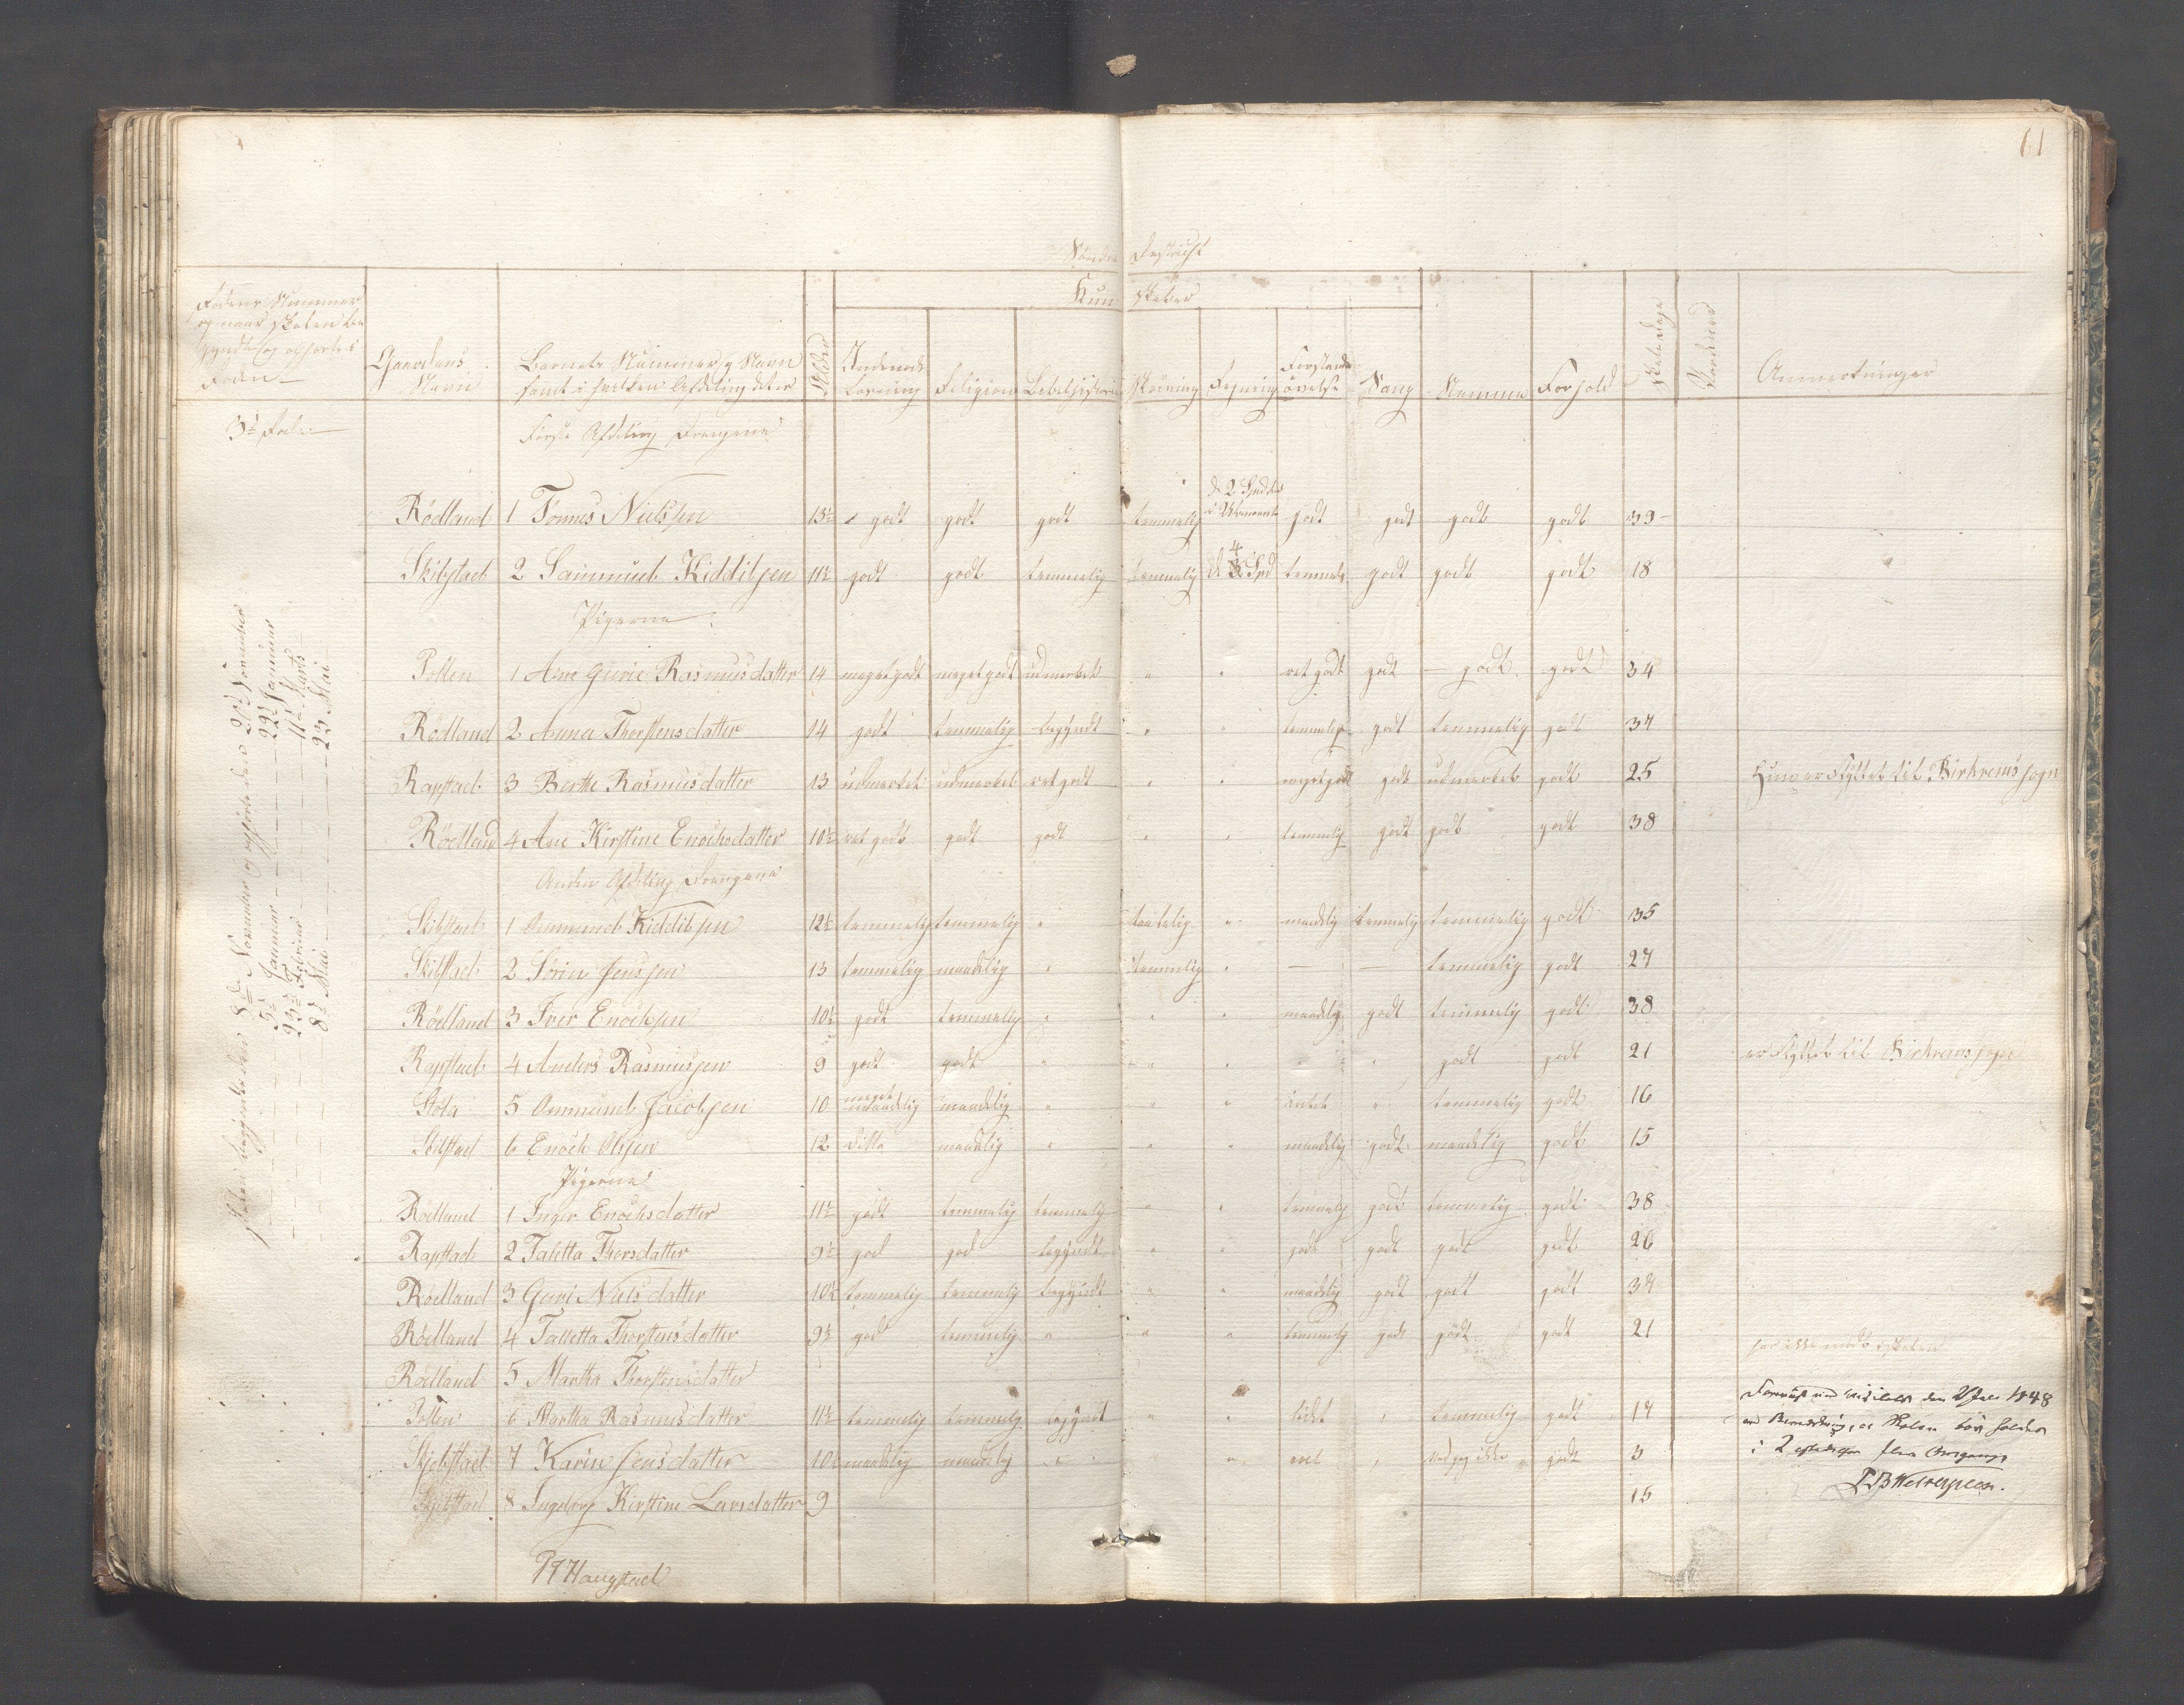 61
Söndre Destrict
Kundskaber
Rodens Nummer
og naar Skolen be
gyndte og ophørte i
Roden
Gaardens
Navn
Barnets Nummer og Navn
samt i hvilken Afdeling det er
Alder
Indenads
Læsning
Religion
Bibelhistorie
Skrivning
Regning
Forstands
øvelse
Sang
Nemme
Forhold
Skoledage
Anmerkninger
3die Rode
Første Afdeling Drengene
de 2 Speties
Rödland 1 Tönnes Nielssen 13½ godt godt godt temmelig godt godt godt godt 39
Skibstad 2 Sammuel Kiddilsen 11½ godt godt temmelig temmelig de 4 Sped temmelig godt godt godt 18
Pigerne
Pollen 1 Ane Gurie Rasmusdatter 14 meget godt meget godt udmerket " " ret godt godt godt godt 34
Rödland 2 Anna Thorstensdatter 14 godt temmelig begyndt " " temmelig godt temmelig godt 37
Rapstad 3 Berthe Rasmusdatter 13 udmerket udmerket ret godt " " meget godt godt udmerket godt 25 Hun er flyttet til Birkrems sogn
Rödland 4 Ane Kirstine Enochsdatter 10½ ret godt godt godt " " temmelig godt godt godt 38
Anden Afdeling Drengene
Skibstad 1 Ommund Kiddilsen 12½ temmelig temmelig " " maadelig temmelig temmelig godt 35
Skibstad 2 Sörin Jenssen 13 temmelig maadelig " temmelig " — — temmelig godt 27
Rödland 3 Iver Enochsen 10½ godt temmelig " " " maadelig godt temmelig godt 38
Rapstad 4 Anders Rasmussen 9 godt godt " " " " " godt godt 21 er flyttet til Birkrems sogn
Støla 5 Ommund Jacobsen 10 meget maadelig maadelig " " " intet " temmelig godt 16
Skibstad 6 Enoch Olsen 12 ditto maadelig " " " maadelig godt maadelig godt 15
Pigerne
Rödland 1 Inger Enochsdatter 11½ godt temmelig temmelig " " temmelig godt temmelig godt 38
Rapstad 2 Taletta Thorsdatter 9½ god god begyndt " " godt godt godt godt 26
Rödland 3 Guri Nielsdatter 10½ temmelig temmelig begyndt " " maadelig godt godt godt 37
Rödland 4 Talletta Thorstensdatter 9½ god temmelig " " " temmelig godt godt godt 21
Rödland 5 Martha Thorstensdatter har ikke mødt i Skolen
Pollen 6 Martha Rasmusdatter 11½ temmelig temmelig begyndt " " lidet temmelig godt 17
Skjebstad 7 Karin Jensdatter 10 maadelig maadelig " " godt 3
Skjebstad 8 Ingeborg Kirstine Larsdatter 9 15
Skolen begyndte den 8de November og ophørte den 20de November
5te Januar — 22de Januar
23de Februar — 11te Marts
8de Mai — 23 Mai
den 2 Juli 1848
Skolen bør holdes
i 2
H Haugstad